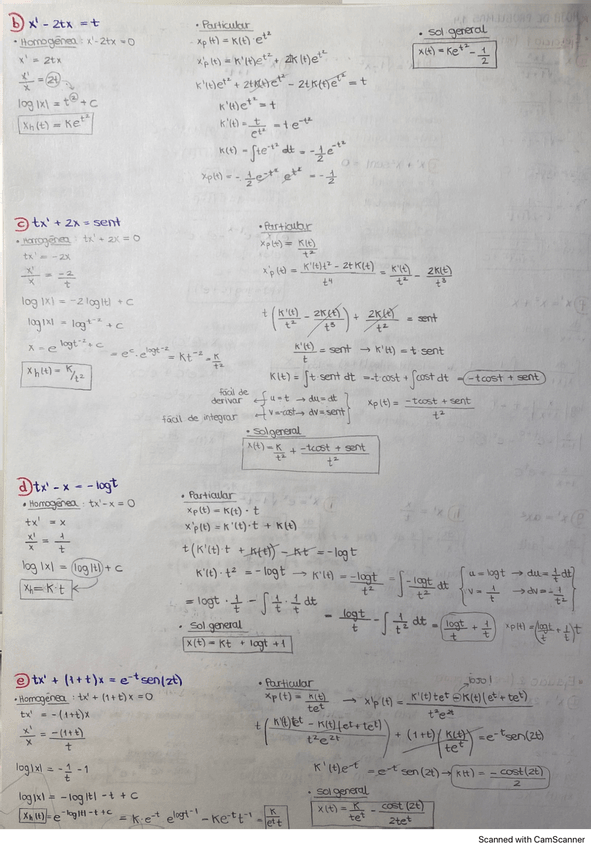 b) x' - 2tx = t
• Homogénea: x' - 2tx = 0
x' = 2tx
x'/x = 2t
log|x| = t² + c
xh(t) = Ke^t²
• Particular
xp(t) = K(t)·e^t²
xp'(t) = K'(t)e^t² + 2tK(t)e^t²
K'(t)e^t² + 2tK(t)e^t² - 2tK(t)e^t² = t
K'(t)e^t² = t
K'(t) = t/e^t² = te^-t²
K(t) = ∫te^-t² dt = -1/2 e^-t²
xp(t) = -1/2 e^-t² e^t² = -1/2
• Sol general
x(t) = Ke^t² - 1/2
c) tx' + 2x = sent
• Homogénea: tx' + 2x = 0
tx' = -2x
x'/x = -2/t
log|x| = -2log|t| + c
log|x| = log t^-2 + c
x = e^(log t^-2 + c) = e^c · e^(log t^-2) = Kt^-2 = K/t²
xh(t) = K/t²
• Particular
xp(t) = K(t)/t²
x'p(t) = (K'(t)t² - 2tK(t))/t⁴ = K'(t)/t² - 2K(t)/t³
t(K'(t)/t² - 2K(t)/t³) + 2K(t)/t² = sent
K'(t)/t = sent → K'(t) = t sent
K(t) = ∫t·sent dt = -t cost + ∫cost dt = -tcost + sent
fácil de derivar ← u = t → du = dt
fácil de integrar ← v = -cost → dv = sent
xp(t) = (-tcost + sent)/t²
• Sol general
x(t) = K/t² + (-tcost + sent)/t²
d) tx' - x = -logt
• Homogénea: tx' - x = 0
tx' = x
x'/x = 1/t
log|x| = log|t| + c
xh = K·t
• Particular
xp(t) = K(t)·t
x'p(t) = K'(t)·t + K(t)
t(K'(t)·t + K(t)) - Kt = -logt
K'(t)·t² = -logt → K'(t) = -logt/t² = ∫-logt/t² dt
u = logt → du = 1/t dt
v = 1/t → dv = -1/t²
= logt · 1/t - ∫1/t · 1/t dt
= logt/t - ∫1/t² dt = logt/t + 1/t
xp(t) = (logt/t + 1/t)t
• Sol general
x(t) = Kt + logt + 1
e) tx' + (1+t)x = e^-t sen(2t)
• Homogénea: tx' + (1+t)x = 0
tx' = -(1+t)x
x'/x = -(1+t)/t
log|x| = -1/t - 1
log|x| = -log|t| - t + c
xh(t) = e^(-log|t| - t + c) = K·e^-t e^(log t^-1) = Ke^-t t^-1 = K/(e^t t)
• Particular
xp(t) = K(t)/(te^t) → x'p(t) = (K'(t)te^t - K(t)(e^t + te^t))/(t²e^2t)
t((K'(t)te^t - K(t)(e^t + te^t))/(t²e^2t)) + (1+t)(K(t)/(te^t)) = e^-t sen(2t)
K'(t)e^-t = e^-t sen(2t) → K(t) = -cost(2t)/2
• Sol general
x(t) = K/(te^t) - cost(2t)/(2te^t)
Scanned with CamScanner